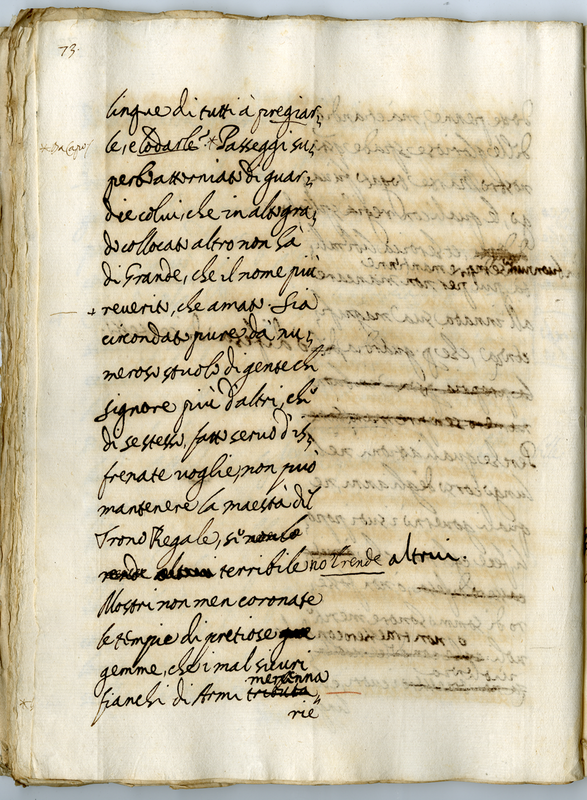 73.
lingue di tutti à pregiar-
le, e lodarle. * Passeggi su-
* Da Capo
perbo attorniato di guar-
die colui, che in alto gra-
do collocato altro non hà
di Grande, che il nome più
reverito, che amato. Sia
circondato pure da nu-
meroso stuolo di gente chi
signore più d'altri, che
di se stesso, fatto servo d'is-
frenate voglie, non può
mantenere la maestà del
Trono Regale, se
terribile nol rende altrui.
Mostri non men coronate
le tempie di pretiose
gemme, che i mal sicuri
fianchi di Armi tributa
mercenna
rie